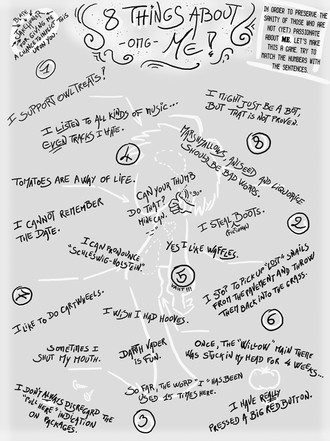 8 THINGS ABOUT
- OMG - ME!
IN ORDER TO PRESERVE THE
SANITY OF THOSE WHO ARE
NOT (YET) PASSIONATE
ABOUT ME, LET'S MAKE
THIS A GAME. TRY TO
MATCH THE NUMBERS WITH
THE SENTENCES.
1
I SUPPORT OWLTREATS!
I MIGHT JUST BE A BOT,
BUT THAT IS NOT PROVEN.
I LISTEN TO ALL KINDS OF MUSIC...
EVEN TRACKS I HATE.
4
MARSHMALLOWS, ANISEED AND LIQUORICE
SHOULD BE BAD WORDS.
8
TOMATOES ARE A WAY OF LIFE.
CAN YOUR THUMB
DO THAT?
MINE CAN.
I CANNOT REMEMBER
THE DATE.
I STEAL BOOTS.
2
I CAN PRONOUNCE
"SCHLESWIG-HOLSTEIN".
YES I LIKE WAFFLES.
5
I STOP TO PICK UP "LOST" SNAILS
FROM THE PAVEMENT AND THROW
THEM BACK INTO THE GRASS.
6
7
I LIKE TO DO CARTWHEELS.
I WISH I HAD HOOVES.
SOMETIMES I
SHUT MY MOUTH.
DARTH VADER
IS FUN.
ONCE, THE "WILLOW" MAIN THEME
WAS STUCK IN MY HEAD FOR 4 WEEKS...
I DON'T ALWAYS DISREGARD THE
"PULL HERE" INDICATION
ON PACKAGES.
SO FAR, THE WORD "I" HAS BEEN
USED 15 TIMES HERE.
3
I HAVE REALLY
PRESSED A BIG RED BUTTON.